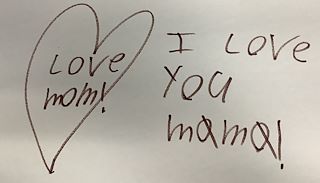 Love
mom!
I Love
You
mama!